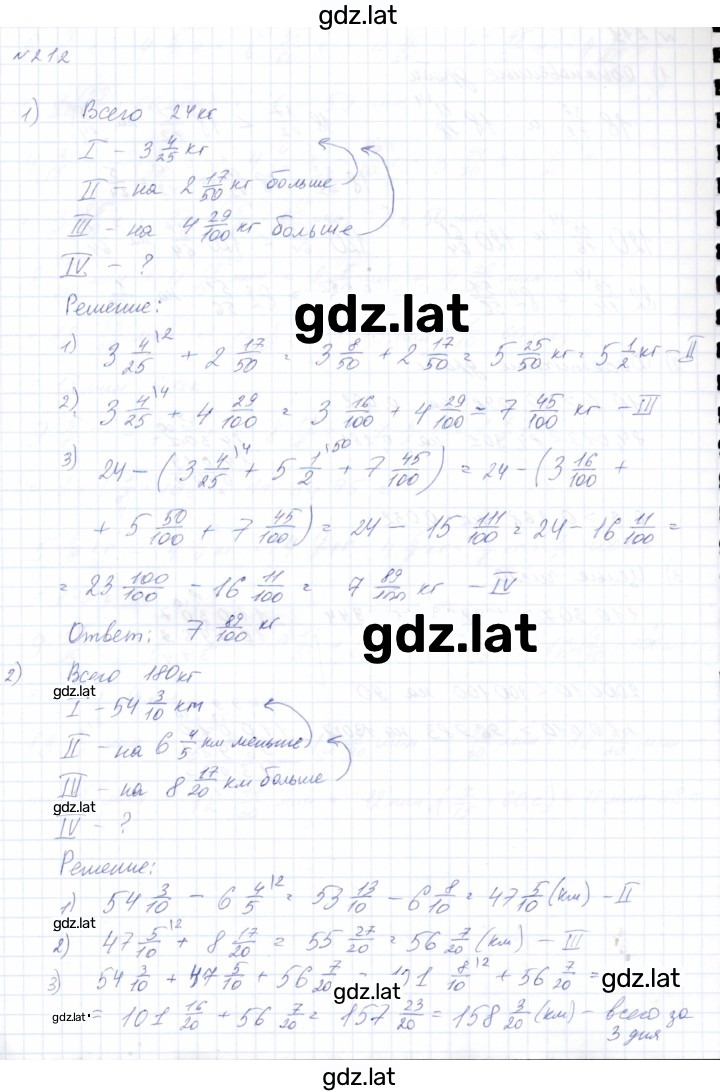 gdz.lat
№212
1) Всего 24кг
I – 3 4/25 кг
II – на 2 17/50 кг больше
III – на 4 29/100 кг больше
IV – ?
Решение:
gdz.lat
1) 3 4/25 \2 + 2 17/50 = 3 8/50 + 2 17/50 = 5 25/50 кг = 5 1/2 кг – II
2) 3 4/25 \4 + 4 29/100 = 3 16/100 + 4 29/100 = 7 45/100 кг – III
3) 24 – (3 4/25 \4 + 5 1/2 \50 + 7 45/100) = 24 – (3 16/100 +
+ 5 50/100 + 7 45/100) = 24 – 15 111/100 = 24 – 16 11/100 =
= 23 100/100 – 16 11/100 = 7 89/100 кг – IV
Ответ: 7 89/100 кг
gdz.lat
2) Всего 180кг
gdz.lat
I – 54 3/10 км
II – на 6 4/5 км меньше
III – на 8 17/20 км больше
gdz.lat
IV – ?
Решение:
1) 54 3/10 – 6 4/5 \2 = 53 13/10 – 6 8/10 = 47 5/10 (км) – II
gdz.lat
2) 47 5/10 \2 + 8 17/20 = 55 27/20 = 56 7/20 (км) – III
3) 54 3/10 + 47 5/10 + 56 7/20 = 101 8/10 \2 + 56 7/20 =
gdz.lat
gdz.lat
= 101 16/20 + 56 7/20 = 157 23/20 = 158 3/20 (км) – всего за
3 дня
gdz.lat
gdz.lat